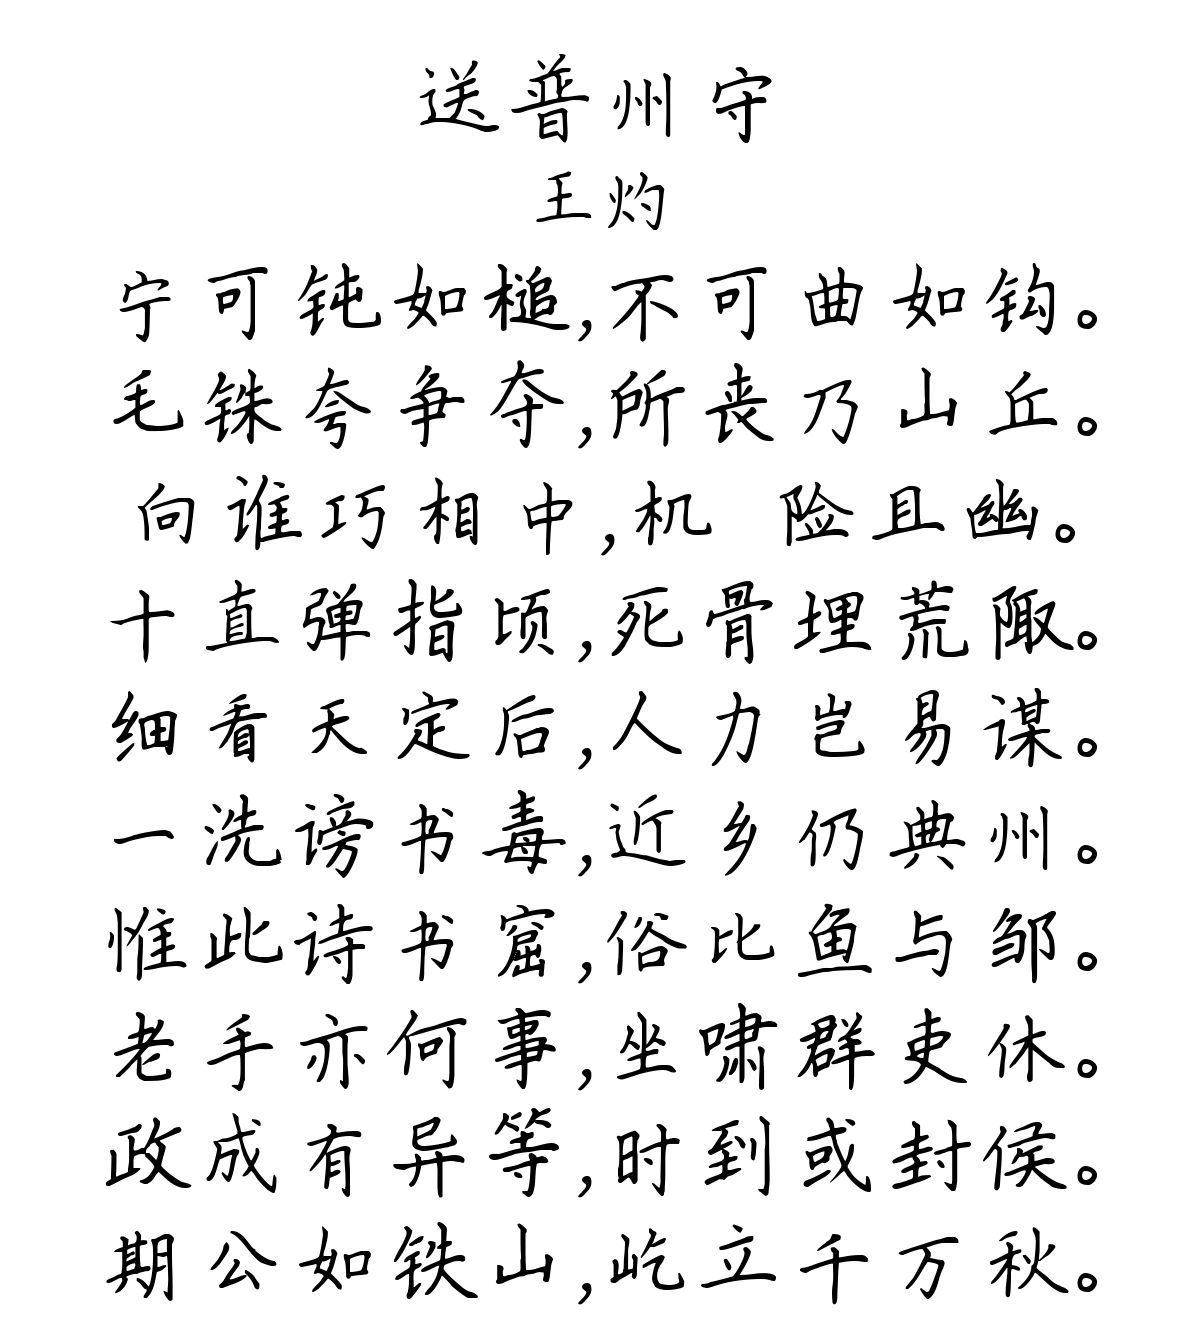 送普州守
王灼
宁可钝如槌,不可曲如钩。
毛铢夸争夺,所丧乃山丘。
向谁巧相中,机 险且幽。
十直弹指顷,死骨埋荒陬。
细看天定后,人力岂易谋。
一洗谤书毒,近乡仍典州。
惟此诗书窟,俗比鱼与邹。
老手亦何事,坐啸群吏休。
政成有异等,时到或封侯。
期公如铁山,屹立千万秋。